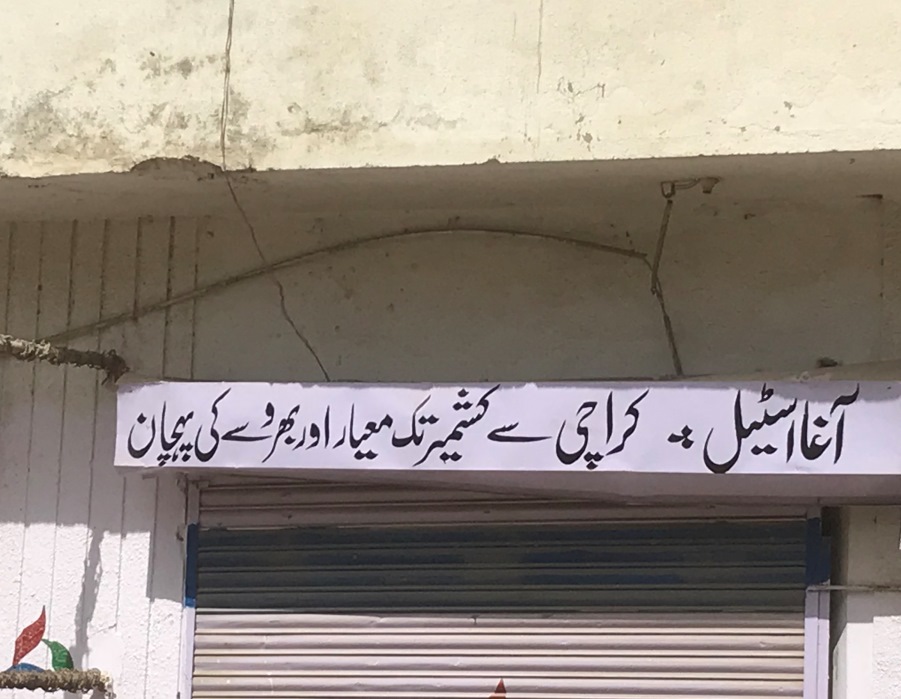 آغا اسٹیل :- کراچی سے کشمیر تک معیار اور بھروسے کی پہچان